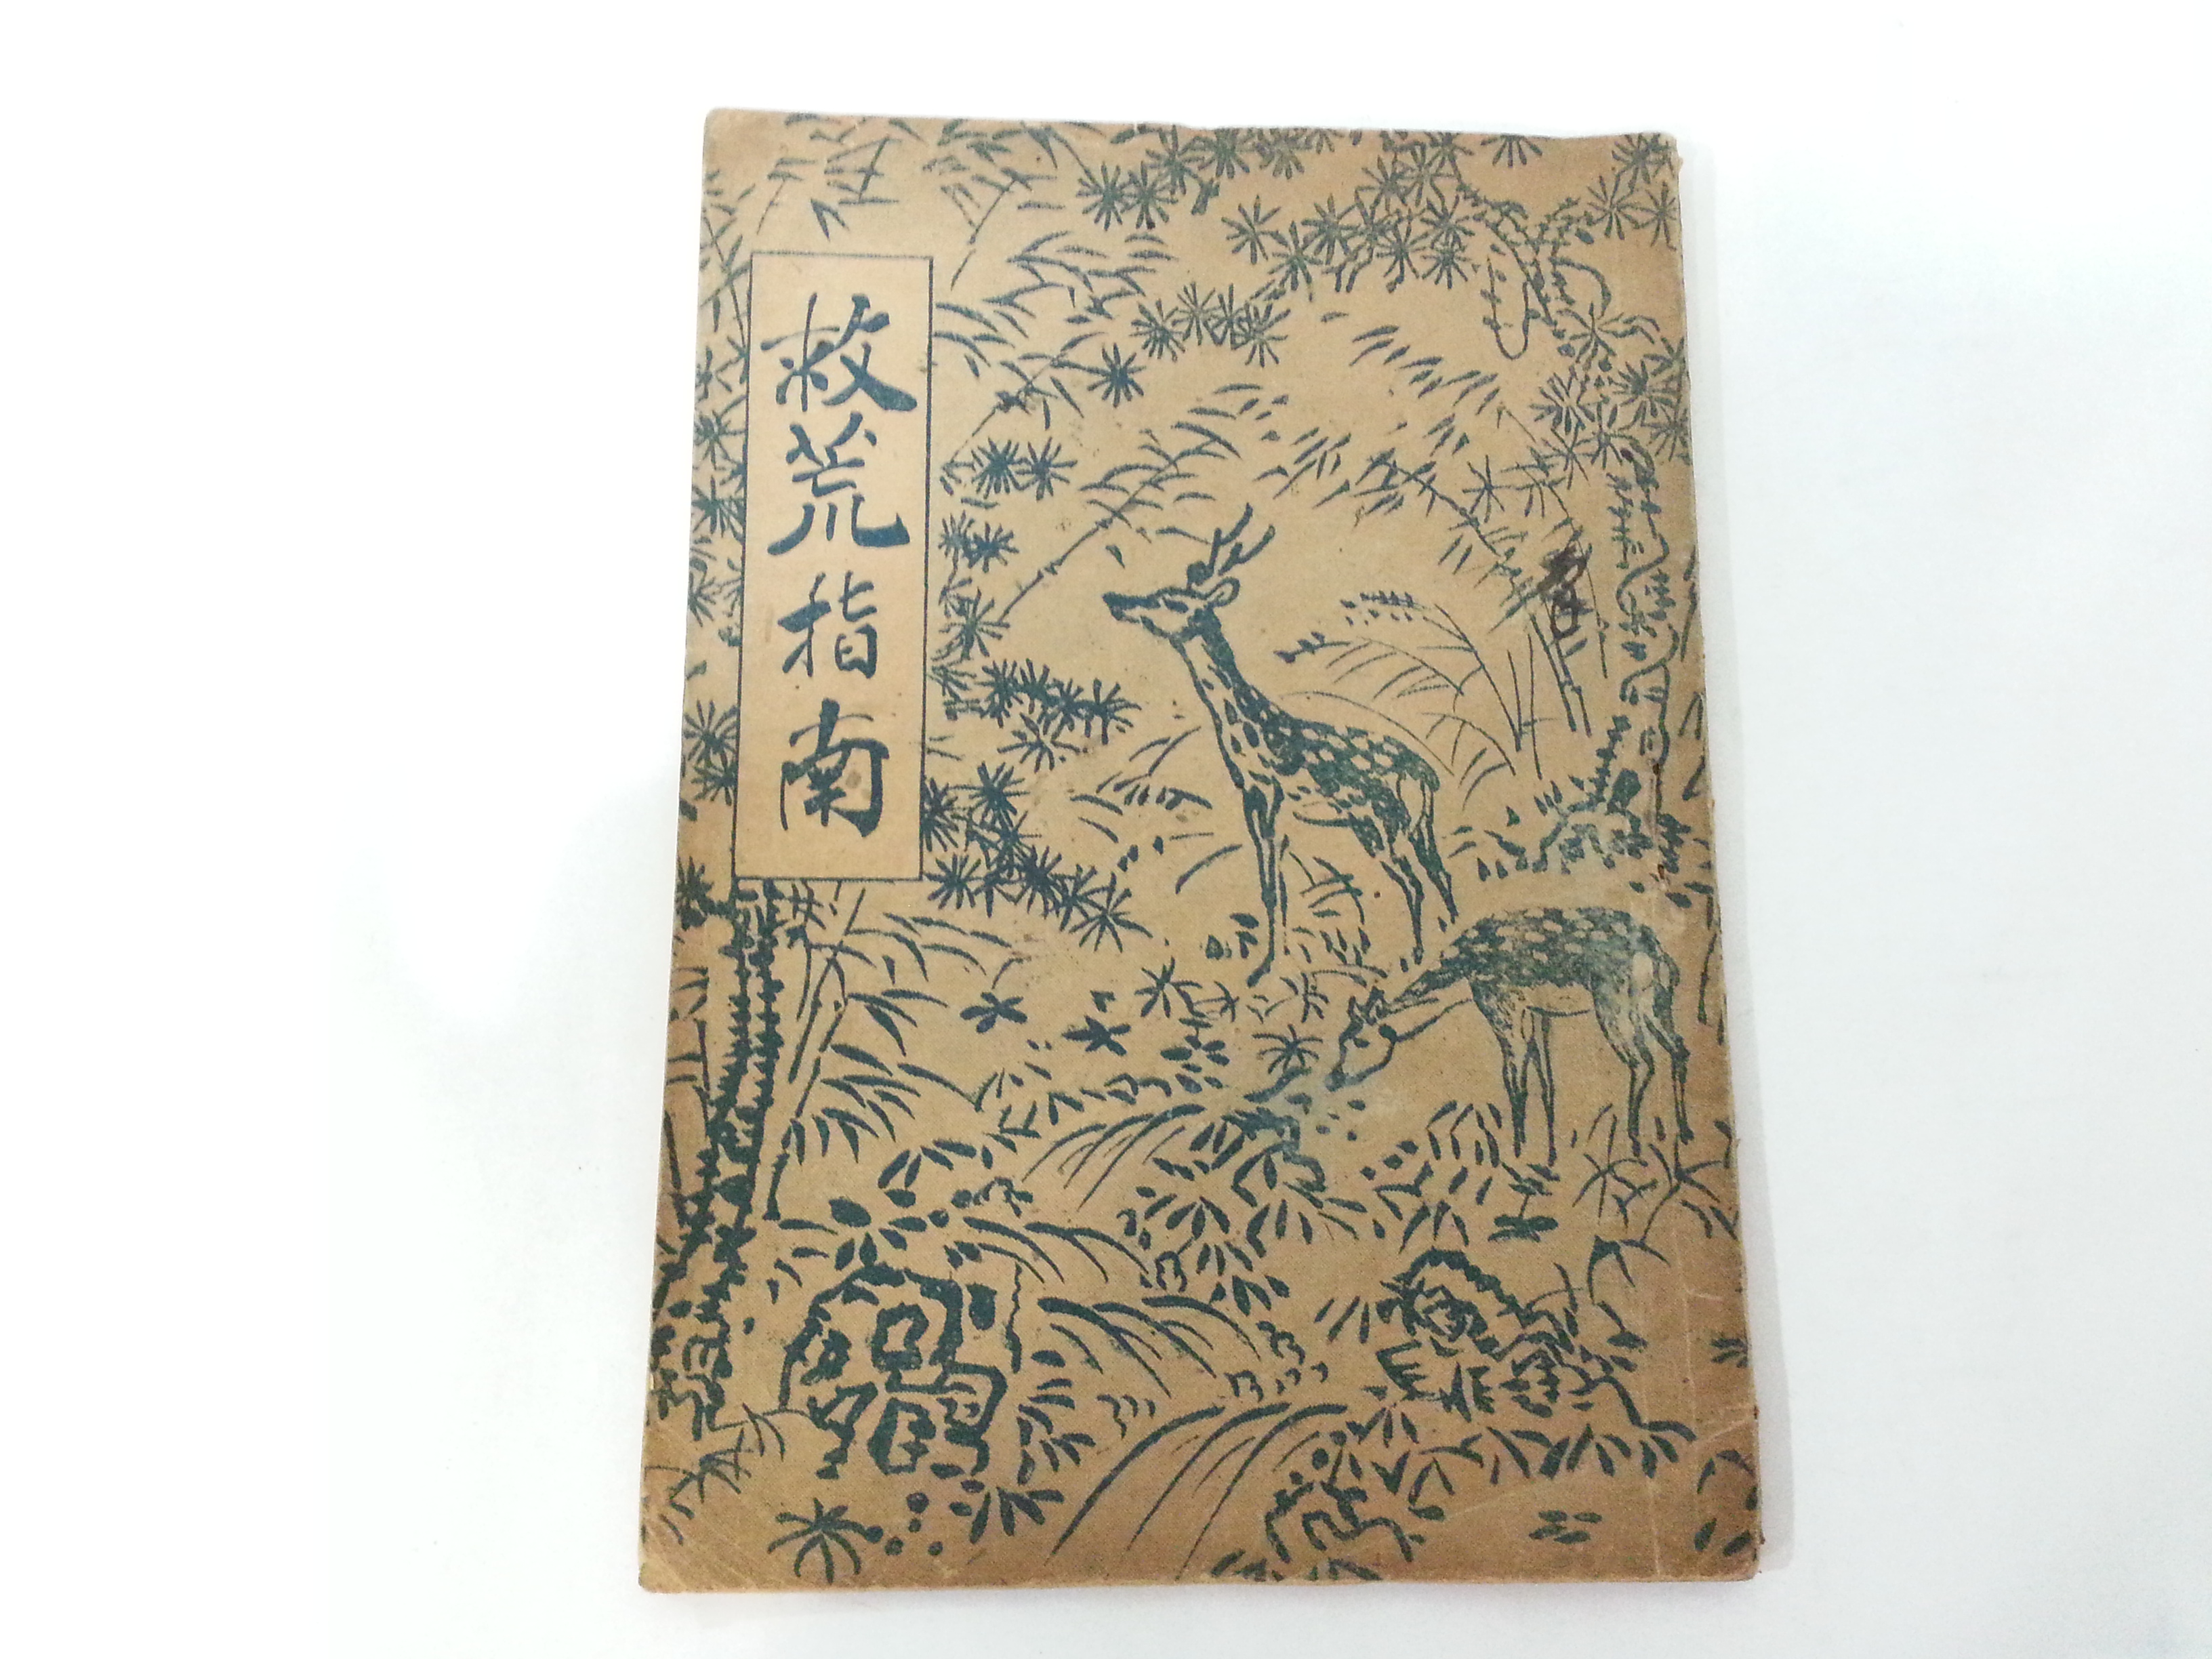 救荒指南